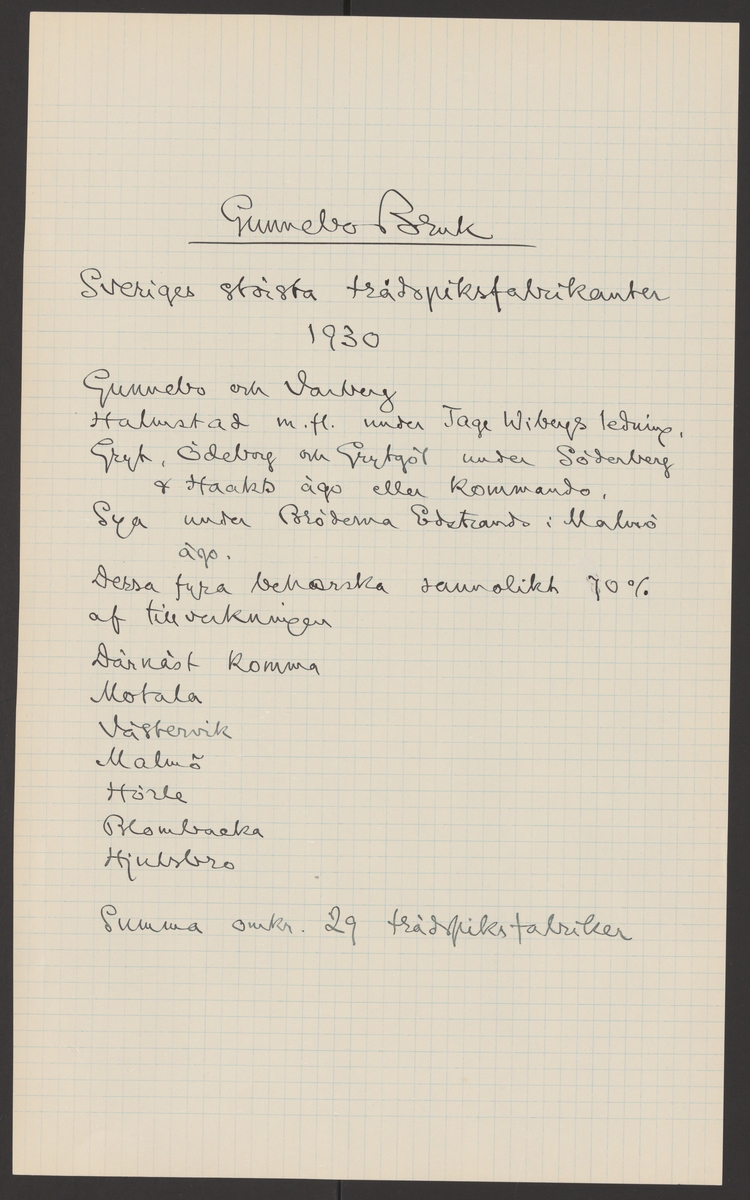 Gunnebo Bruk
Sveriges största trådspiksfabrikanter
1930
Gunnebo och Varberg
Halmstad m.fl. under Tage Wibergs ledning.
Gryt, Ödeborg och Grytgöl under Söderberg
& Haaks ägo eller kommando.
Sya under Bröderna Edstrands i Malmö
ägo.
Dessa fyra behärska sannolikt 70%
af tillverkningen
Därnäst komma
Motala
Västervik
Malmö
Hörle
Blombacka
Hjulsbro
Summa omkr. 29 trådspiksfabriker